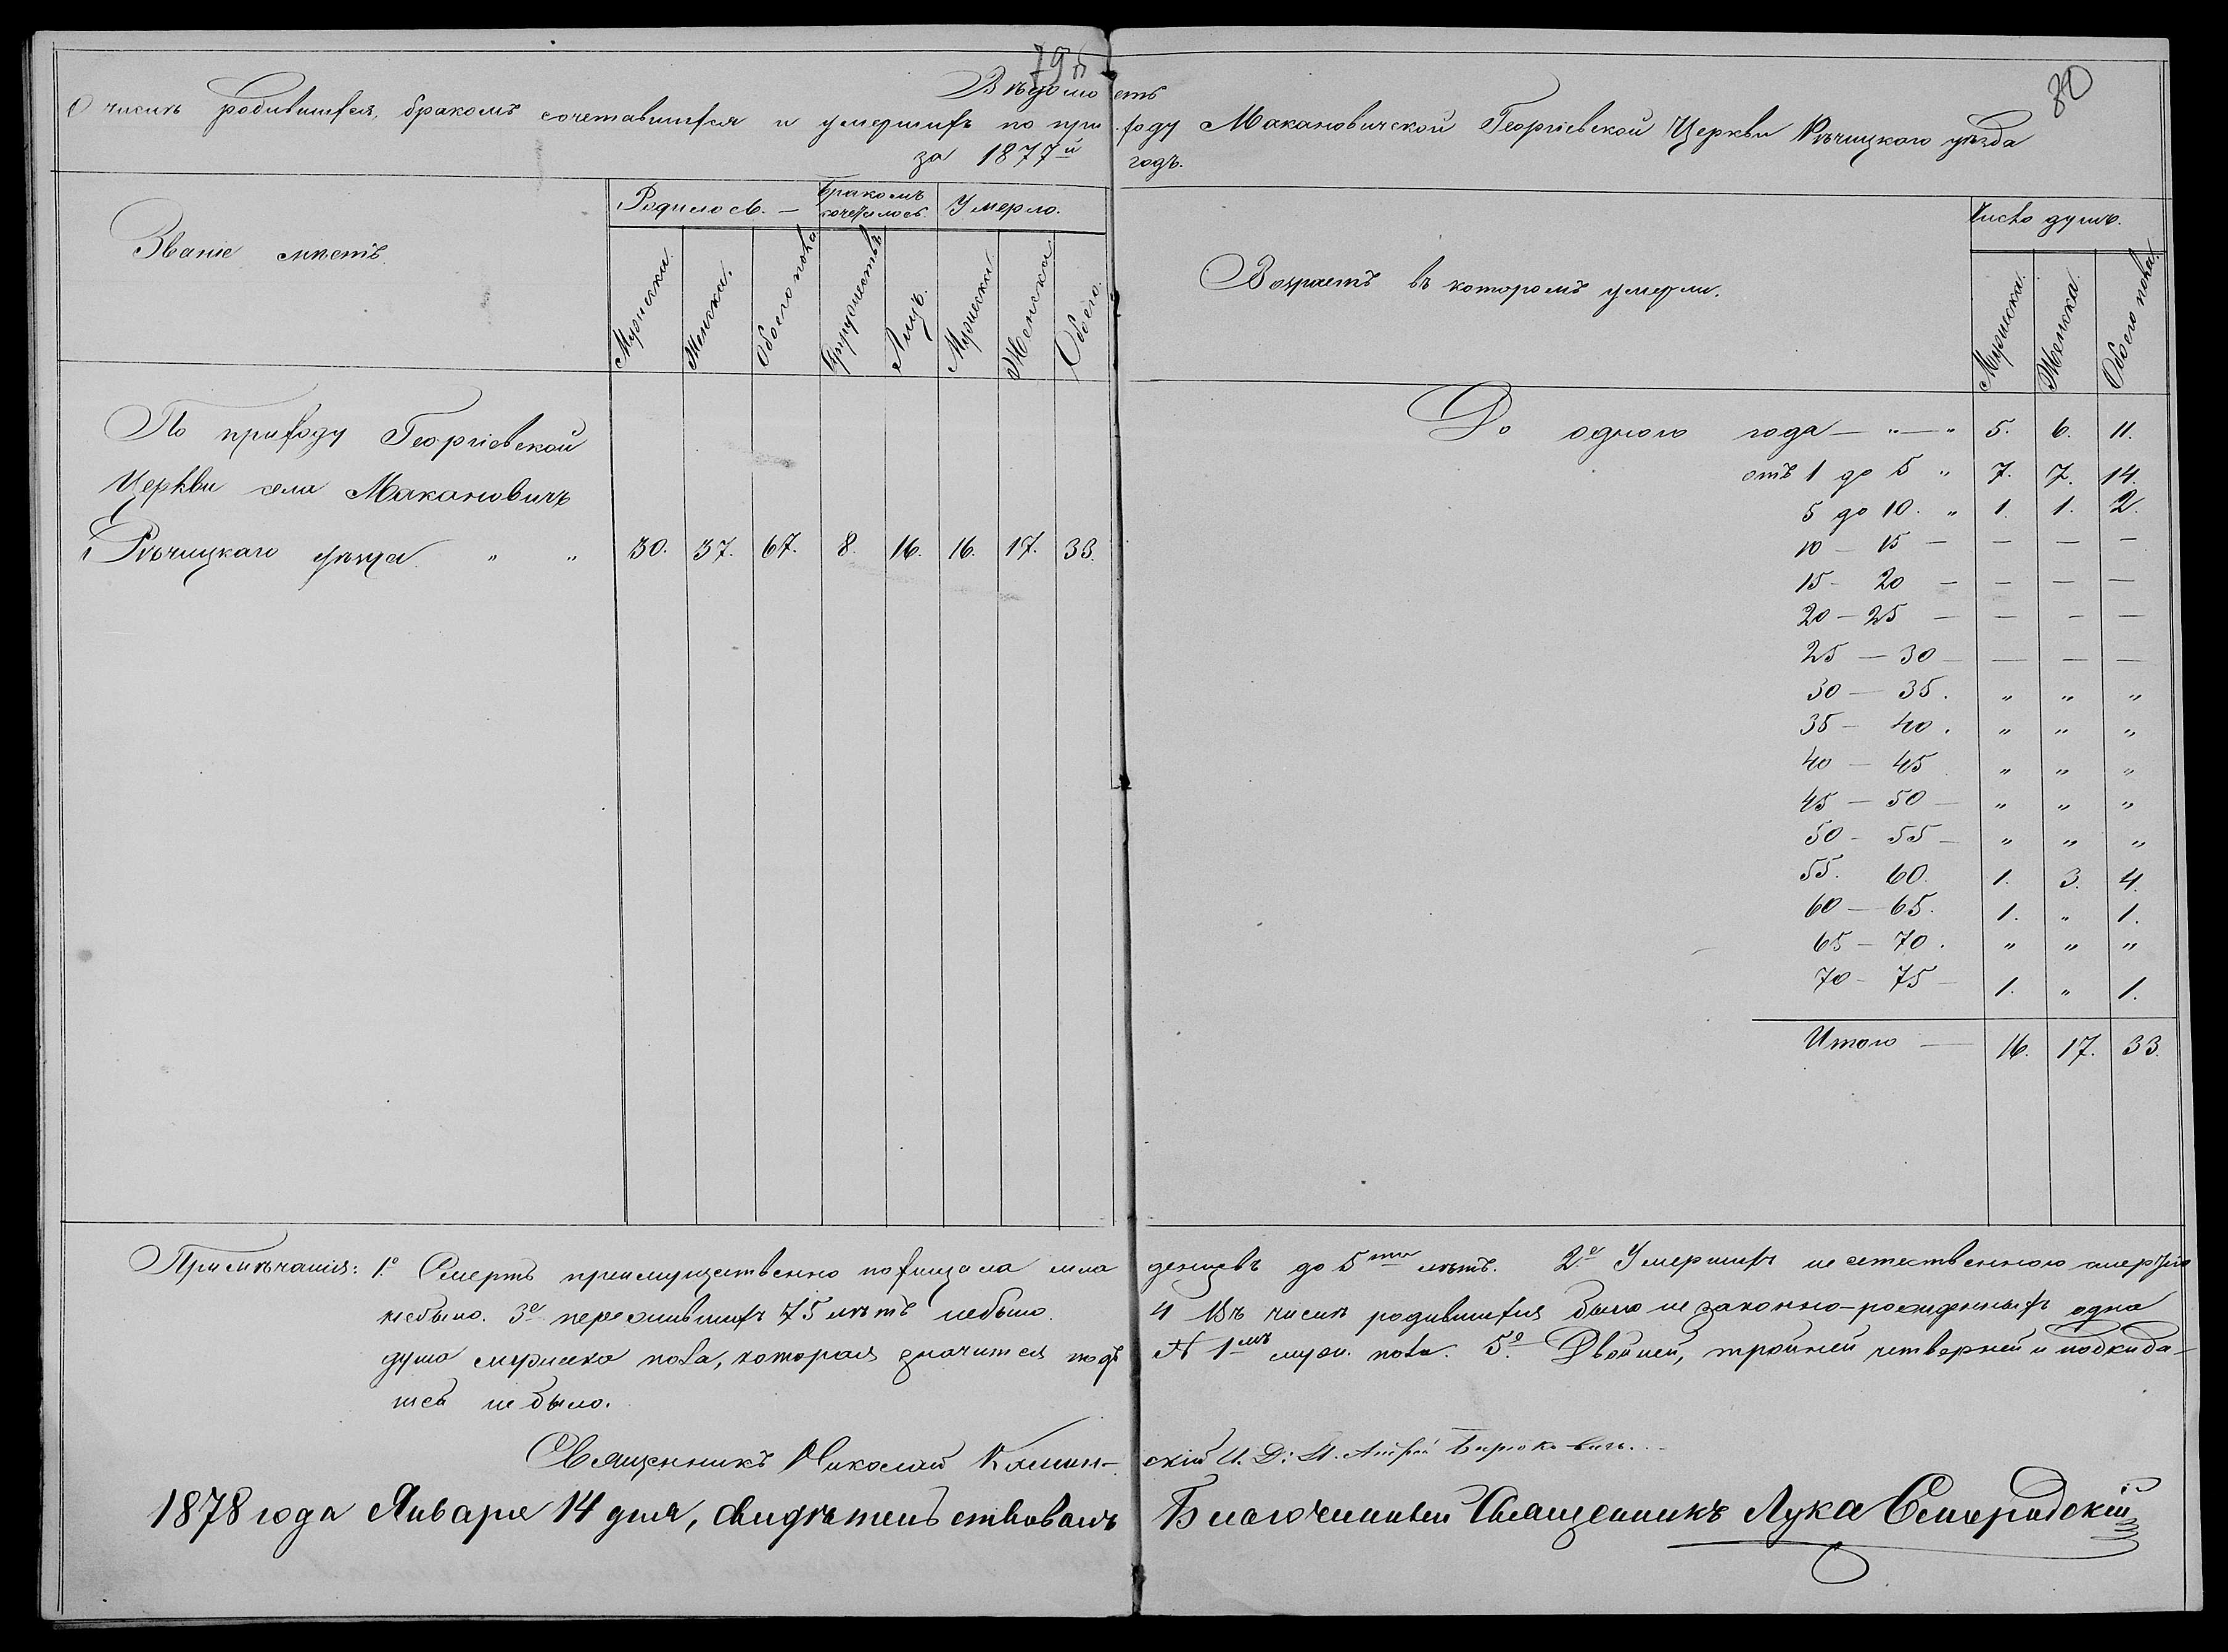 79 б
80
Вѣдомость
О числѣ родившихся, бракомъ сочетавшихся и умершихъ по приходу Макановичской Георгіевской Церкви Рѣчицкаго уѣзда
за 1877й годъ.
Званіе мѣстъ.
Родилось. — Бракомъ сочеталось. Умерло.
Мужеска. Женска. Обоего пола Супружествъ Лицъ. Мужеска Женска Обоего.
По приходу Георгіевской
Церкви села Макановичъ
Рѣчицкаго уѣзда. " " 30. 37. 67. 8. 16. 16. 17. 33.
Возрастъ въ которомъ умерли.
Число душъ.
Мужеска. Женска. Обоего пола.
До одного года — " — " 5. 6. 11.
отъ 1 до 5 " 7. 7. 14.
5 до 10. " 1. 1. 2.
10 — 15 — — — —
15 — 20 — — — —
20 — 25 — — — —
25 — 30 — — — —
30 — 35. " " "
35 — 40. " " "
40 — 45 " " "
45 — 50 — " " "
50 — 55 — " " "
55. 60. 1. 3. 4.
60 — 65. 1. " 1.
65 — 70. " " "
70 — 75 — 1. " 1.
Итого — 16. 17. 33.
Примѣчанія: 1.е Смерть преимущественно похищала младенцевъ до 5ти лѣтъ. 2.е Умершихъ неестественною смертію
небыло. 3е пережившихъ 75 лѣтъ небыло. 4 Въ числѣ родившихся было незаконно-рожденныхъ одна
душа мужеска пола, которая значится подъ № 1мъ муж. пола. 5.е Двойней, тройней четверней и подкида-
тей не было.
Священникъ Николай Камин- скій И. Д: П. Андрей Бирюковичъ.
1878 года Января 14 дня, свидѣтельствовалъ Благочинный Священникъ Лука